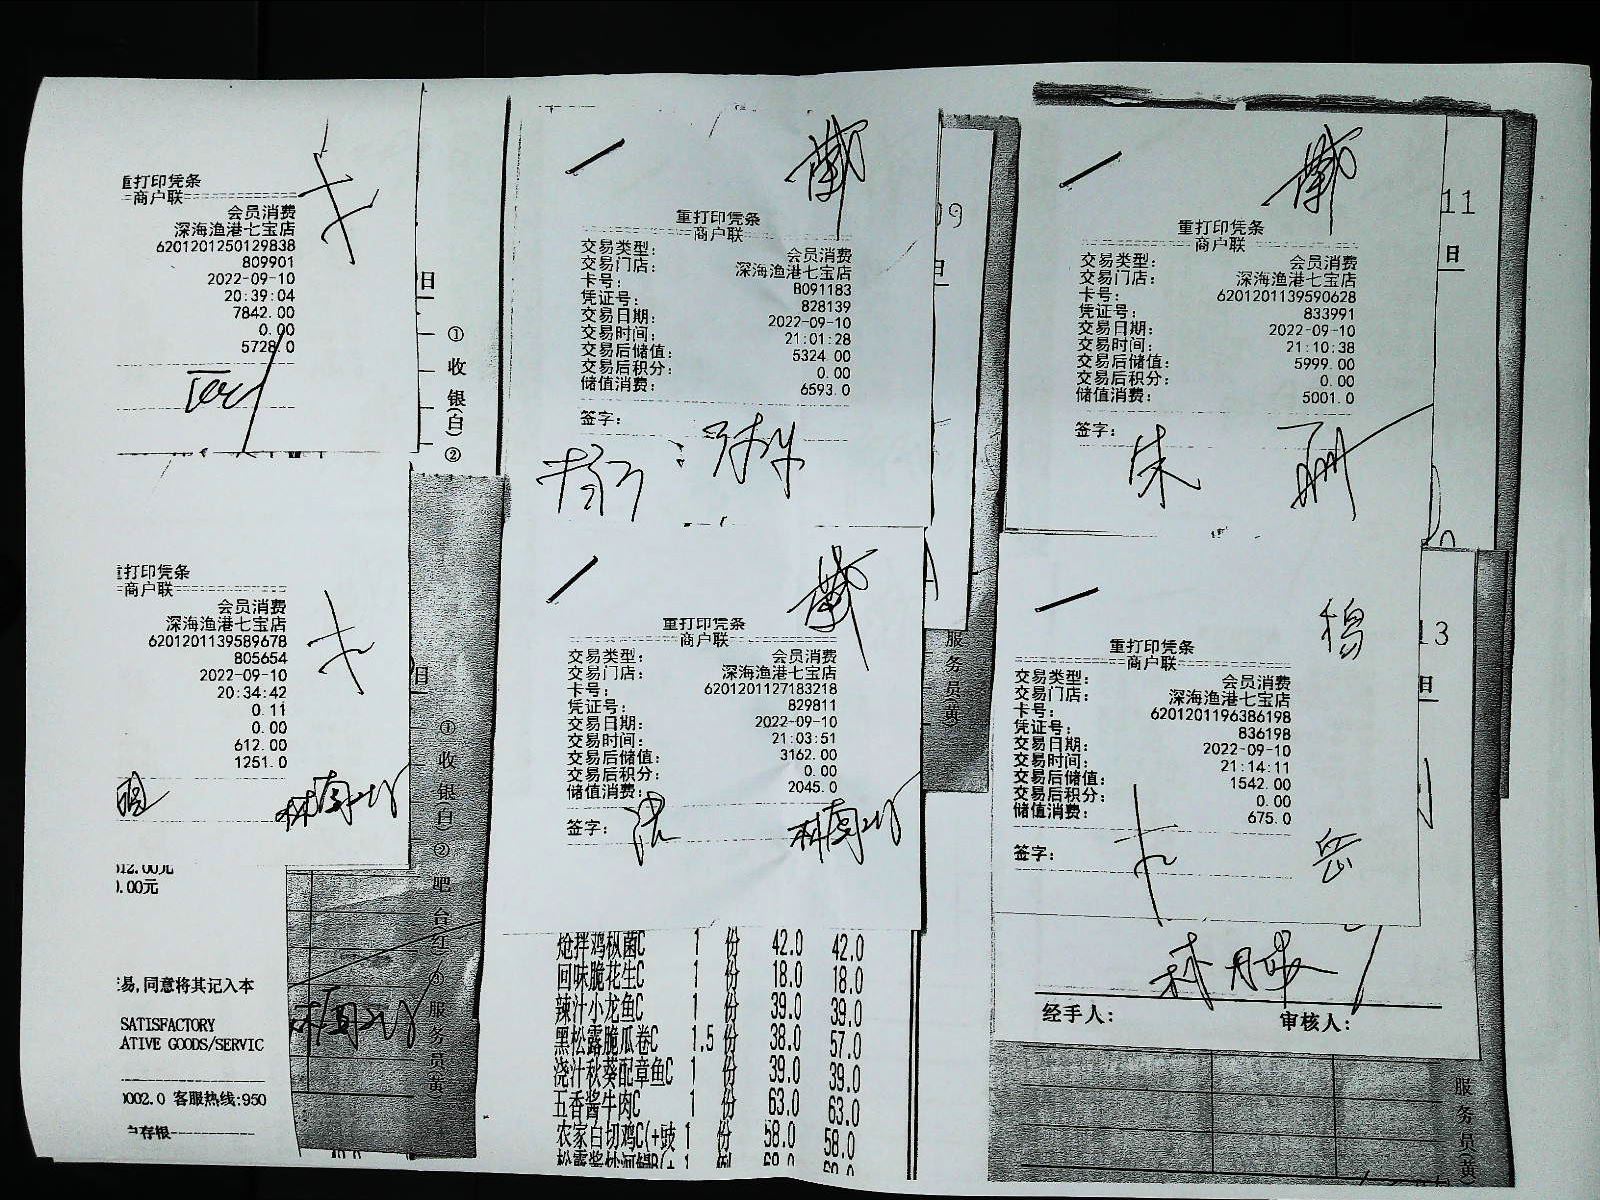 重打印凭条
商户联
会员消费
深海渔港七宝店
6201201250129838
809901
2022-09-10
20:39:04
7842.00
0.00
5728.0
日
①收银(白)②
重打印凭条
商户联
交易类型: 会员消费
交易门店: 深海渔港七宝店
卡号: 8091183
凭证号: 828139
交易日期: 2022-09-10
交易时间: 21:01:28
交易后储值: 5324.00
交易后积分: 0.00
储值消费: 6593.0
签字:
09
日
重打印凭条
商户联
交易类型: 会员消费
交易门店: 深海渔港七宝店
卡号: 6201201139590628
凭证号: 833991
交易日期: 2022-09-10
交易时间: 21:10:38
交易后储值: 5999.00
交易后积分: 0.00
储值消费: 5001.0
签字:
朱
11
日
重打印凭条
商户联
会员消费
深海渔港七宝店
6201201139589678
805654
2022-09-10
20:34:42
0.11
0.00
612.00
1251.0
日
①收银(白)②吧台(红)③服务员(黄)
重打印凭条
商户联
交易类型: 会员消费
交易门店: 深海渔港七宝店
卡号: 6201201127183218
凭证号: 829811
交易日期: 2022-09-10
交易时间: 21:03:51
交易后储值: 3162.00
交易后积分: 0.00
储值消费: 2045.0
签字: 沈
服务员(黄)
重打印凭条
商户联
交易类型: 会员消费
交易门店: 深海渔港七宝店
卡号: 6201201196386198
凭证号: 836198
交易日期: 2022-09-10
交易时间: 21:14:11
交易后储值: 1542.00
交易后积分: 0.00
储值消费: 675.0
签字:
岳
13
日
12.00元
0.00元
易,同意将其记入本
SATISFACTORY
ATIVE GOODS/SERVIC
002.0 客服热线:950
存根
炝拌鸡枞菌C 1 份 42.0 42.0
回味脆花生C 1 份 18.0 18.0
辣汁小龙鱼C 1 份 39.0 39.0
黑松露脆瓜卷C 1.5 份 38.0 57.0
浇汁秋葵配章鱼C 1 份 39.0 39.0
五香酱牛肉C 1 份 63.0 63.0
农家白切鸡C(+豉 1 份 58.0 58.0
经手人: 审核人:
服务员(黄)